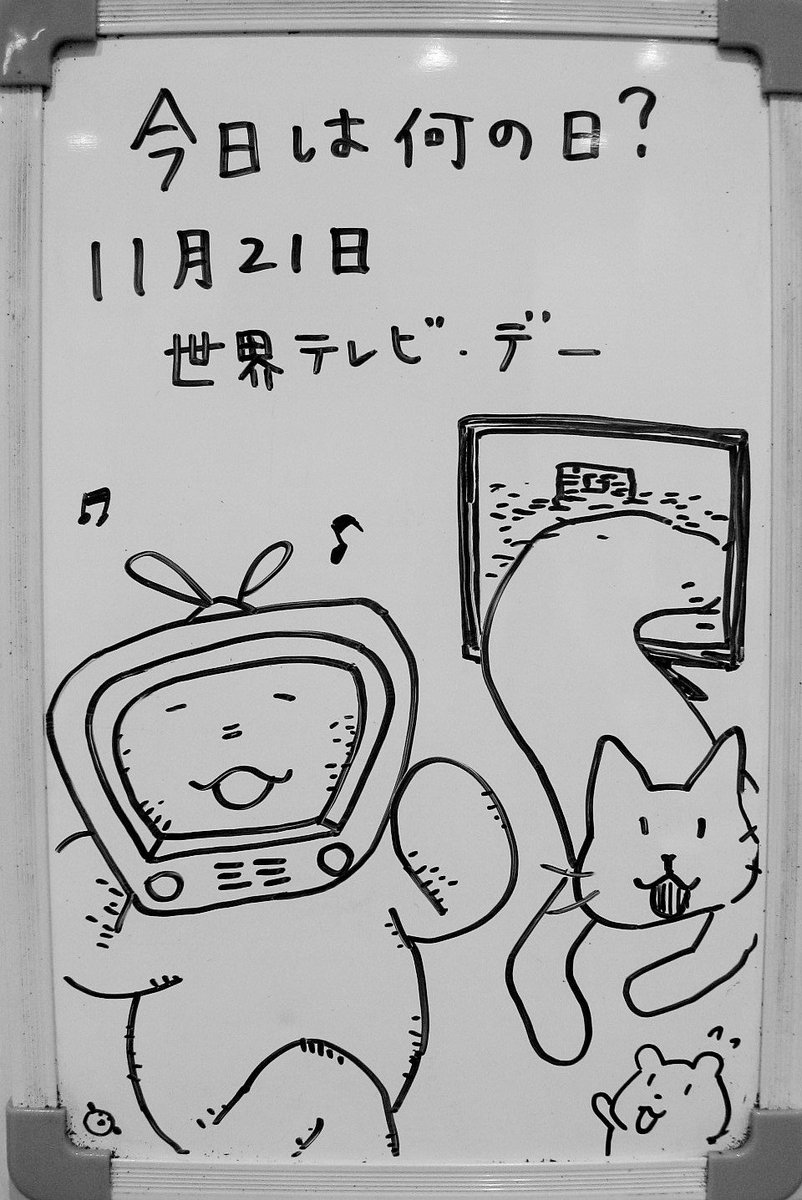 今日は何の日?
11月21日
世界テレビ・デー